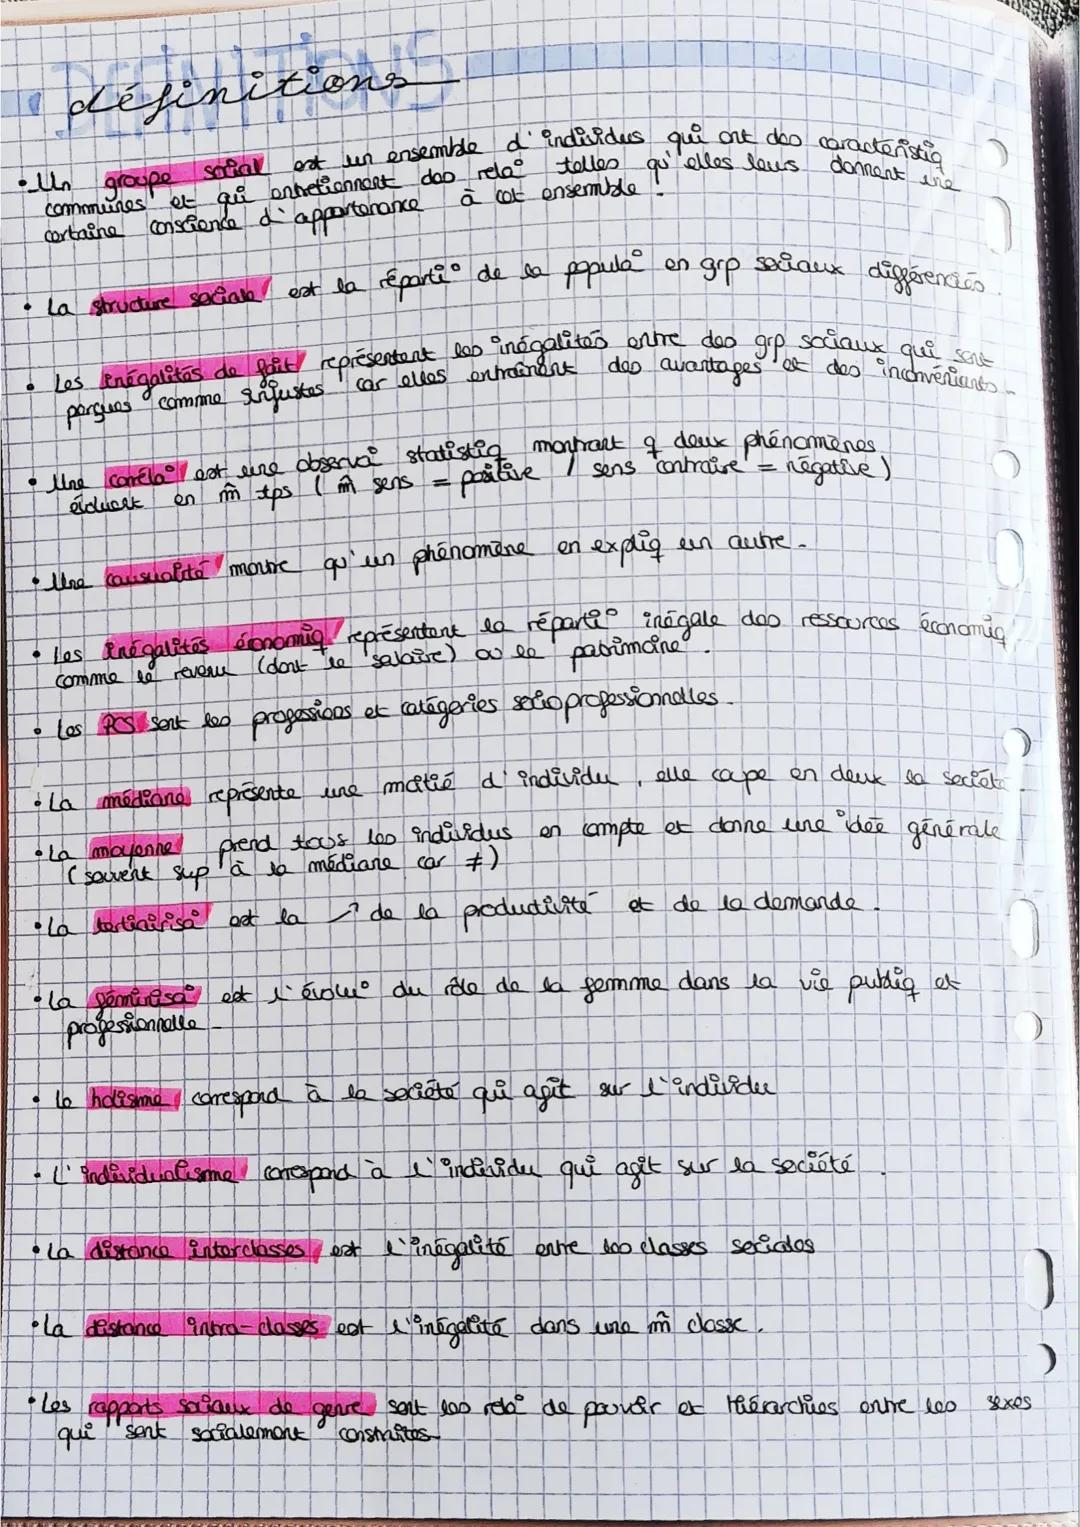 DEFINITIONS
définitions
• Un groupe social est un ensemble d'individus qui ont des caractéristiq
communes et qui entretiennent des rela° telles qu'elles leurs donnent une
certaine conscience d'appartenance à cet ensemble.
• La structure sociale est la réparti° de la popula° en grp sociaux différenciés.
• Les inégalités de fait représentent les inégalités entre des grp sociaux qui sont
perçues comme injustes car elles entraînent des avantages et des inconvénients.
• Une corréla° est une observa° statistiq montrant q deux phénomènes
évoluent en m̂ tps ( m̂ sens = positive / sens contraire = négative)
• Une causualité montre qu'un phénomène en expliq un autre.
• Les inégalités économiq représentent la réparti° inégale des ressources économiq
comme le revenu (dont le salaire) ou le patrimoine.
• Les PCS sont les professions et catégories socioprofessionnelles.
• La médiane représente une moitié d'individu, elle coupe en deux la société.
• La moyenne prend tous les individus en compte et donne une idée générale
(souvent sup à la médiane car ≠)
• La tertiairisa° est la ↗ de la productivité et de la demande.
• La féminisa° est l'évolu° du rôle de la femme dans la vie publiq et
professionnelle.
• Le holisme correspond à la société qui agit sur l'individu
• L'individualisme correspond à l'individu qui agit sur la société.
• La distance interclasses est l'inégalité entre les classes sociales
• La distance intra-classes est l'inégalité dans une m̂ classe.
• Les rapports sociaux de genre sont les rela° de pouvoir et hiérarchies entre les sexes
qui sont socialement construites.